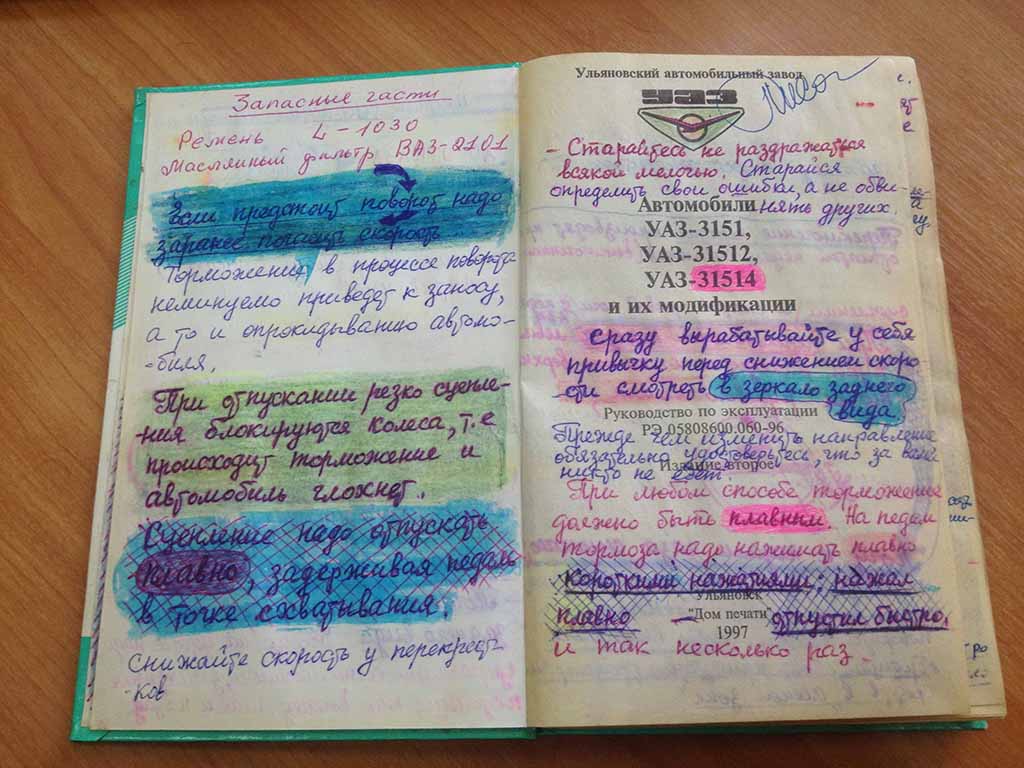 Запасные части
Ремень L-1030
Маслянный фильтр ВАЗ-2101
Если предстоит поворот надо
заранее погасить скорость
Торможение в процессе поворота
неминуемо приведет к заносу,
а то и опрокидыванию автомо-
-биля.
При отпускании резко сцепле-
-ния блокируются колеса, т.е
происходит торможение и
автомобиль глохнет.
Сцепление надо отпускать
плавно, задерживая педаль
в точке схватывания.
Снижайте скорость у перекрест-
-ков
Ульяновский автомобильный завод
УАЗ
- Старайтесь не раздражаться
всякой мелочью. Старайся
определить свои ошибки, а не обви-
Автомобили
нять других.
УАЗ-3151,
УАЗ-31512,
УАЗ-31514
и их модификации
Сразу вырабатывайте у себя
привычку перед снижением скоро-
сти смотреть в зеркало заднего
вида.
Руководство по эксплуатации
РЭ 05808600.060-96
Прежде чем изменить направление
обязательно удостоверьтесь, что за вами
Издание второе
никто не едет.
При любом способе торможение
должно быть плавным. На педаль
тормоза надо нажимать плавно
короткими нажатиями: нажал
Ульяновск
плавно - отпустил быстро,
"Дом печати"
1997
и так несколько раз